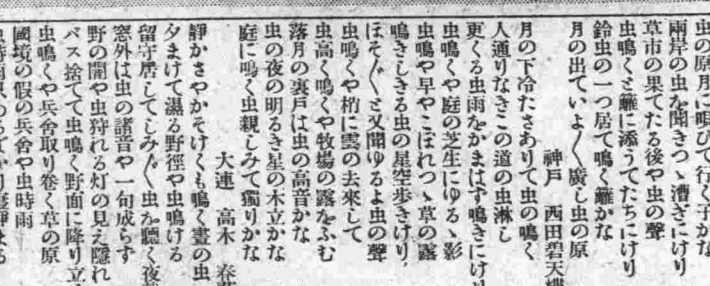 虫の原月に唄ひて行く子かな
兩岸の虫を聞きつゝ漕ぎにけり
草市の果てたる後や虫の聲
虫鳴くと籬に添うてたちにけり
鈴虫の一つ居て鳴く籬かな
月の出ていよ〱廣し虫の原
神戸 西田碧天
月の下冷たさありて虫の鳴く
人通りなきこの道の虫淋し
更くる虫雨をかまはず鳴きにけり
虫鳴くや庭の芝生にゆるゝ影
虫鳴や早やこぼれつゝ草の露
鳴きしきる虫の星空歩きけり
ほそ〲と又聞ゆるよ虫の聲
虫鳴くや梢に雲の去來して
虫高く鳴くや牧場の露をふむ
落月の裏戸は虫の高音かな
虫の夜の明るき星の木立かな
庭に鳴く虫親しみて獨りかな
大連 高木 春
靜かさやかそけくも鳴く晝の虫
夕まけて濕る野徑や虫鳴ける
留守居してしみ〲虫を聽く夜
窓外は虫の諸音や一句成らず
野の闇や虫狩れる灯の見え隱れ
バス捨てて虫鳴く野面に降り立
虫鳴くや兵舍取り卷く草の原
國境の假の兵舍や虫時雨